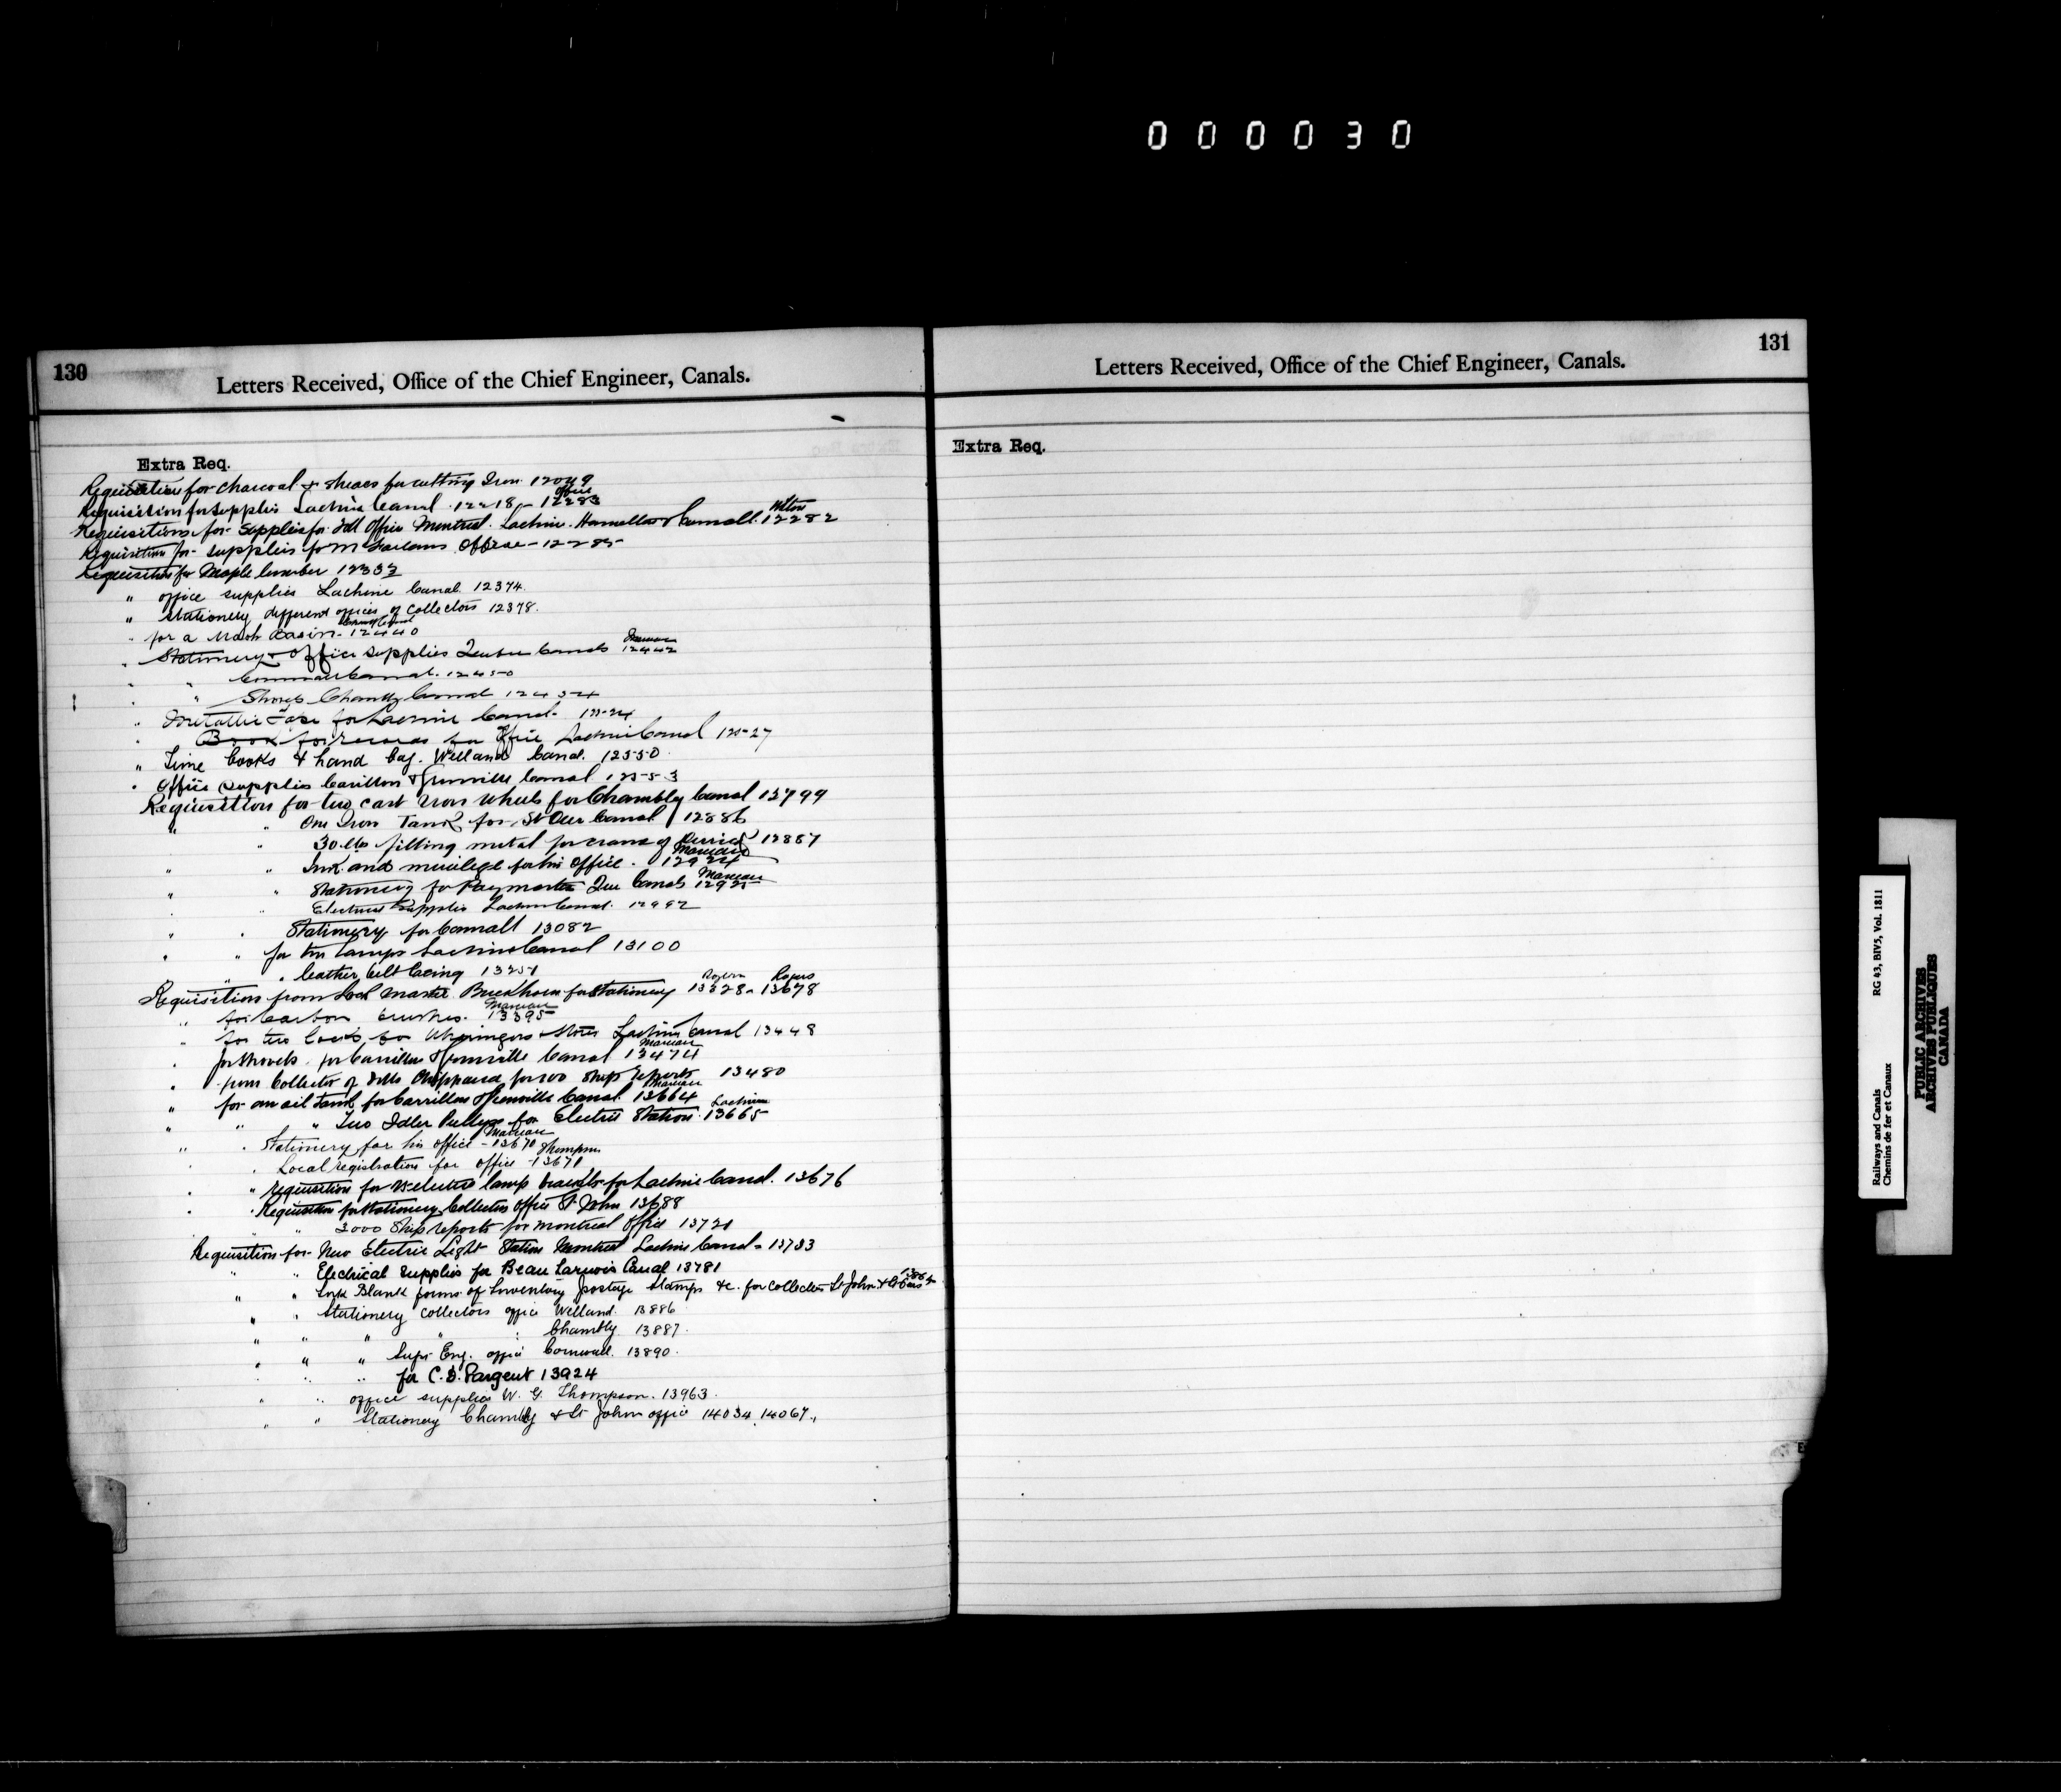 000030
130
Letters Received, Office of the Chief Engineer, Canals.
Extra Req.
Requisition for charcoal & shears for cutting Iron 12049
Requisition for supplies Lachine Canal. 12218, - Office 12283
Requisitions for Supplies for Toll Office Montreal. Lachine. Hamilton & Cornwall. 12282
Requisition for supplies for Office - 12285
Requisition for Maple lumber 12332
" office supplies Lachine Canal 12374.
" Stationery different offices of Collectors 12378.
" for a Wash Basin - 12440
" Stationery & Office supplies Quebec Canals 12442
" " Cornwall Canal. 12450
" " Stores Chambly Canal 12454
" Metallic Tape for Lachine Canal - 12524
" Book for records for Office Lachine Canal 12527
" Time books & hand bag. Welland Canal. 12550
" Office supplies Carillon & Grenville Canal 12553
Requisition for two cast iron wheels for Chambly Canal 12799
" " One Iron Tank for St Ours Canal 12886
" 30 lbs filling metal for crane of Derrick 12887
" " Ink and mucilage for his Office. Marceau 12924
" " Stationery for Paymaster Que Canals Marceau 12925
" " Electrical Supplies Lachine Canal. 12992
" " Stationery for Cornwall 13082
" " for ten Lamps Lachine Canal 13100
" " leather belt lacing 13251
Requisition from Lock Master Buckhorn for stationery 13328 - Rogers 13678
" for Carbon brushes. Marceau 13395
" for two locks, for Stores Lachine Canal 13448
" for shovels for Carillon & Grenville Canal Marceau 13474
" from Collector of Tolls Chippawa for 200 Ship reports 13480
" for an oil tank for Carrillon & Grenville Canal Marceau 13664
" " " Two Idler Pulleys for Electric Station Lachine 13665
" " Stationery for his office - Marceau 13670
" " Local registration for office - Thompson 13671
" " requisition for electric lamp brackets for Lachine Canal. 13676
" " Requisition for Stationery Collectors Office St John 13688
" " 3000 Ship reports for Montreal Office 13721
Requisition for New Electric Light Station Montreal Lachine Canal - 13733
" " Electrical supplies for Beauharnois Canal 13781
" " Ink Blank forms of Inventory postage stamps &c. for Collectors St John & St Ours
" " Stationery Collectors office Welland. 13886
" " " " " Chambly 13887.
" " " Supt Eng. office Cornwall. 13890.
" " " for C. D. Sargent 13924
" " office supplies W. G. Thompson. 13963.
" " Stationery Chambly & St John office 14034, 14067.,
131
Letters Received, Office of the Chief Engineer, Canals.
Extra Req.
Railways and Canals
Chemins de fer et Canaux
RG 43, BIV5, Vol. 1811
PUBLIC ARCHIVES
ARCHIVES PUBLIQUES
CANADA